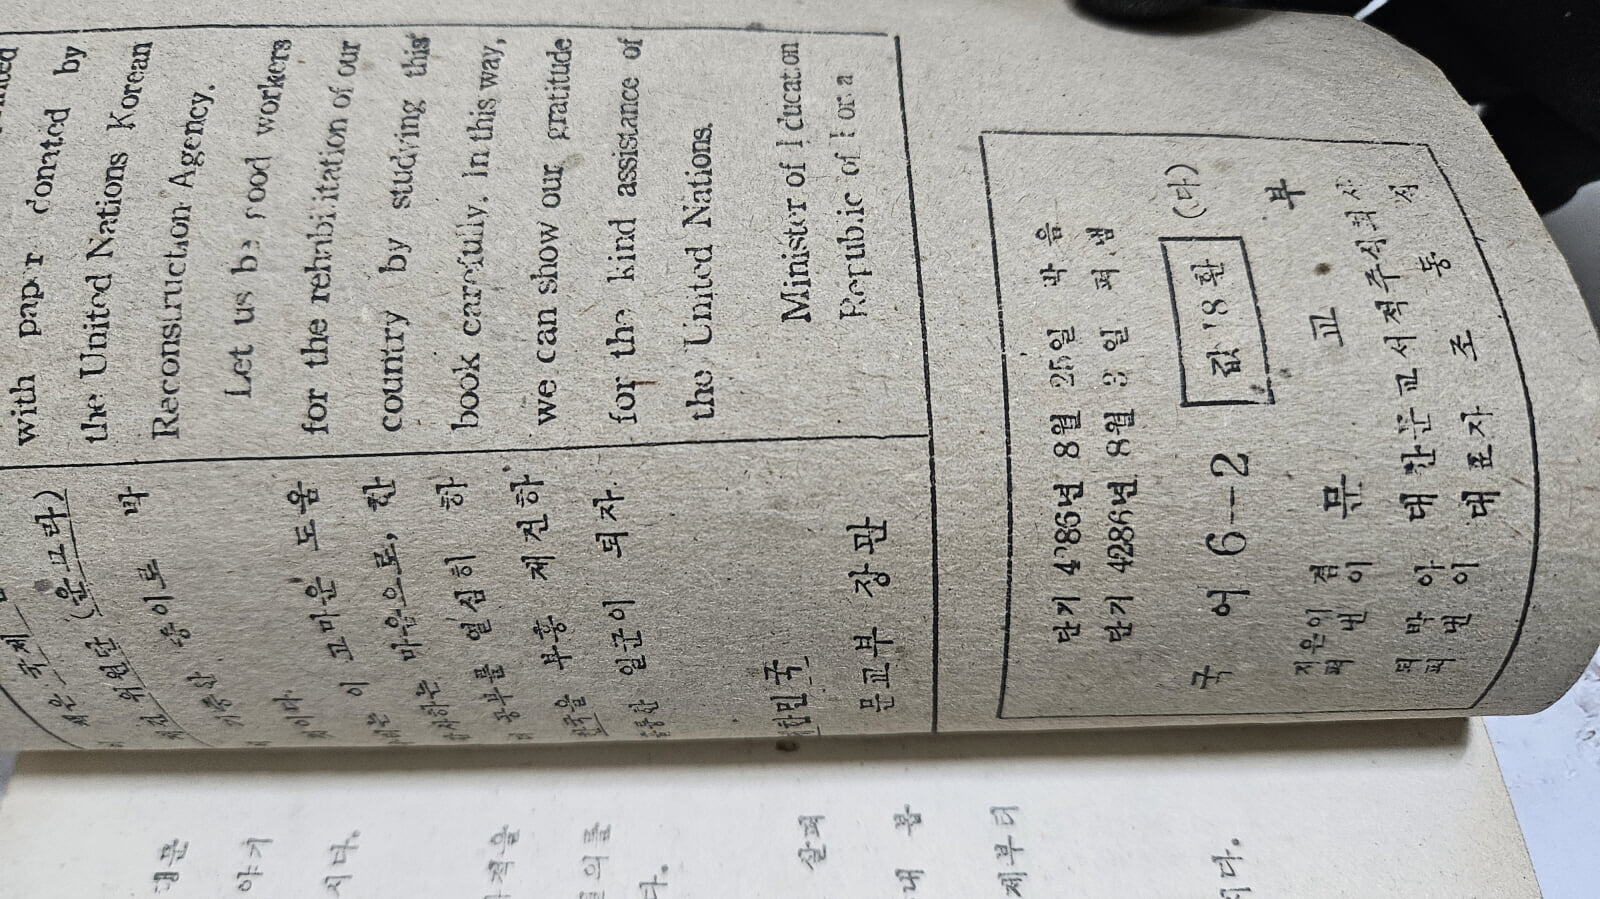 with paper donated by
the United Nations Korean
Reconstruction Agency.
Let us be good workers
for the rehabilitation of our
country by studying this
book carefully. In this way,
we can show our gratitude
for the kind assistance of
the United Nations.
Minister of Education
Republic of Korea
(운끄라)
종이로 박
이 고마운 도움
마음으로, 한
공부를 열심히 하
부흥 재건하
일군이 되자.
대한민국
문교부 장관
단기 4286년 8월 25일 박음
단기 4286년 8월 3일 펴냄
국어 6—2 값 18환 (다)
지은이 겸 펴낸이 문교부
박아 펴낸이 대한문교서적주식회사
대표자 조동식
야기
시다.
다.
살펴
제부터
시다.